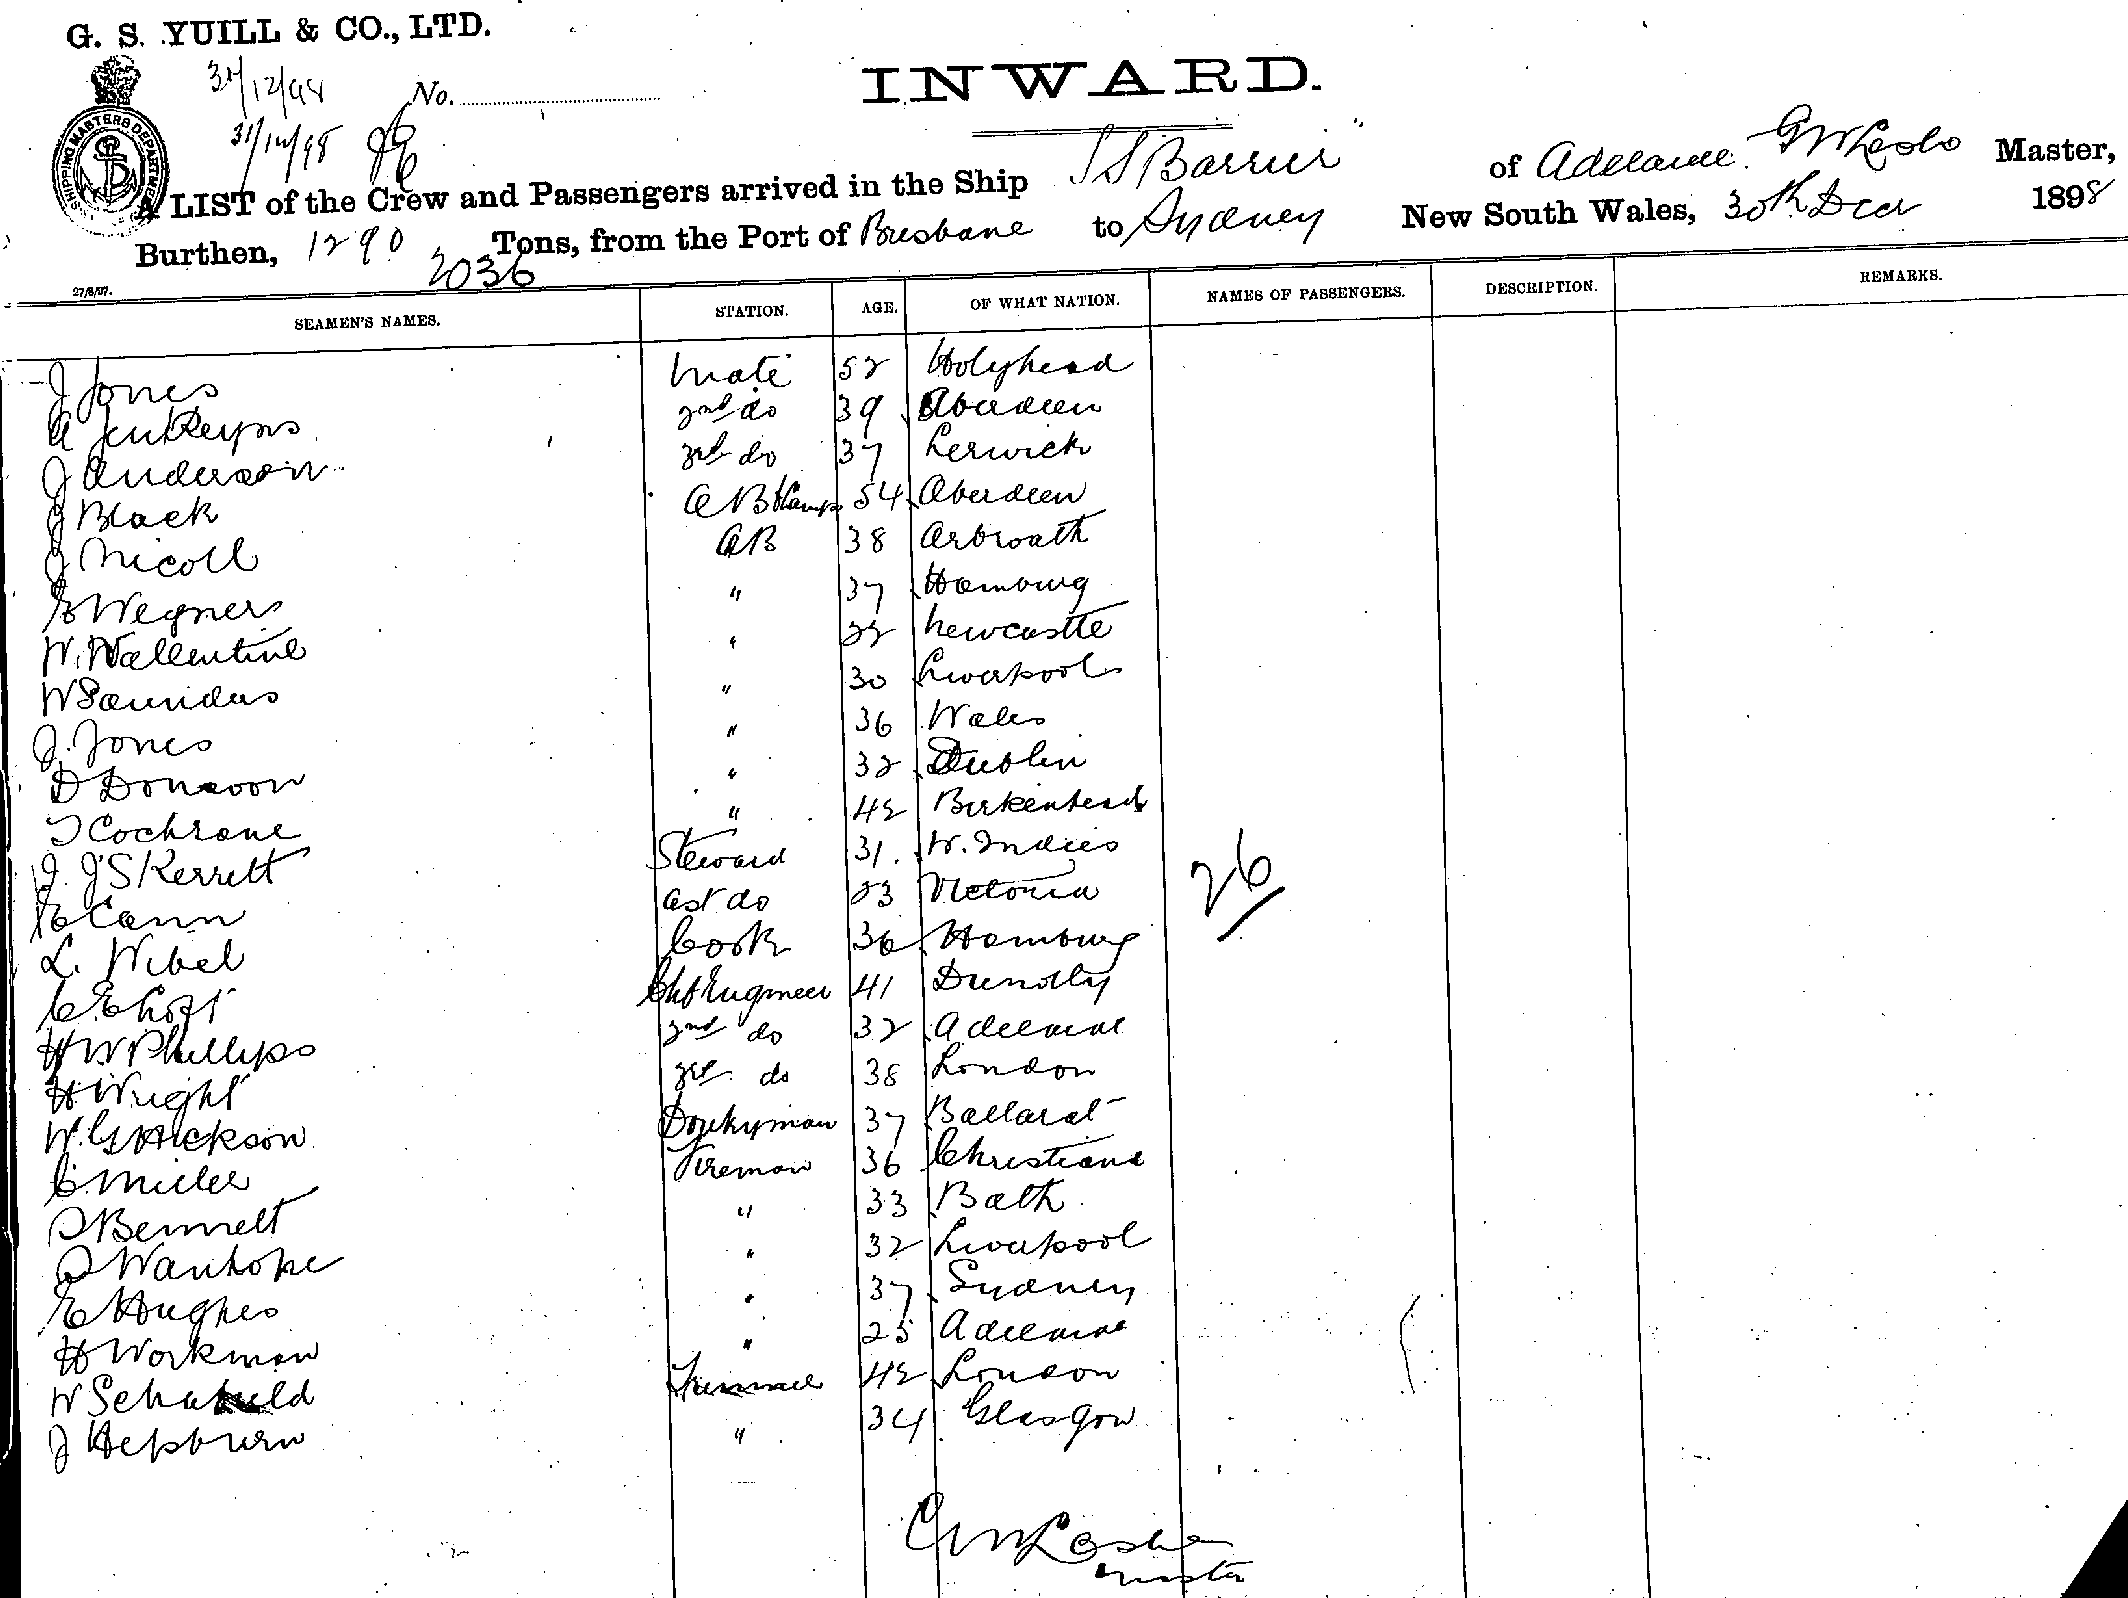 G. S. YUILL & CO., LTD.
31/12/98 No.
INWARD.
31/12/98
SHIPPING MASTERS DEPARTMENT
A LIST of the Crew and Passengers arrived in the Ship "SS Barrier" of Adelaide. Master,
Burthen, 1290 Tons, from the Port of Brisbane to Sydney New South Wales, 30th Decr 1898
2036
27/8/97.
SEAMEN'S NAMES. STATION. AGE. OF WHAT NATION. NAMES OF PASSENGERS. DESCRIPTION. REMARKS.
J Jones Mate 52 Holyhead
A Jenkeyns 2nd do 39 Aberdeen
J Anderson 3rd do 37 Lerwick
J Black AB Lamps 54 Aberdeen
J Nicoll AB 38 Arbroath
E Wegner " 37 Hamburg
W. Wallentine " 22 Newcastle
W Saunders " 30 Liverpool
J. Jones " 36 Wales
D Donavon " 32 Dublin
T Cochrane " 42 Birkenhead
J. J S Kerrett Steward 31. W. Indies
E Cann ast do 23 Victoria
26
L. Wibel Cook 36 Hamburg
C. E Chf Engineer 41 Dunolly
H W Phillips 2nd do 32 Adelaide
H Wright 3rd do 38 London
W. G Hickson Donkyman 37 Ballarat
C. Miller Fireman 36 Christiana
Bennett " 33 Bath
Wanhope " 32 Liverpool
E Hughes " 37 Sydney
H Workman " 25 Adelaide
W Trimmer 42 London
J Hepburn " 34 Glasgow
Master